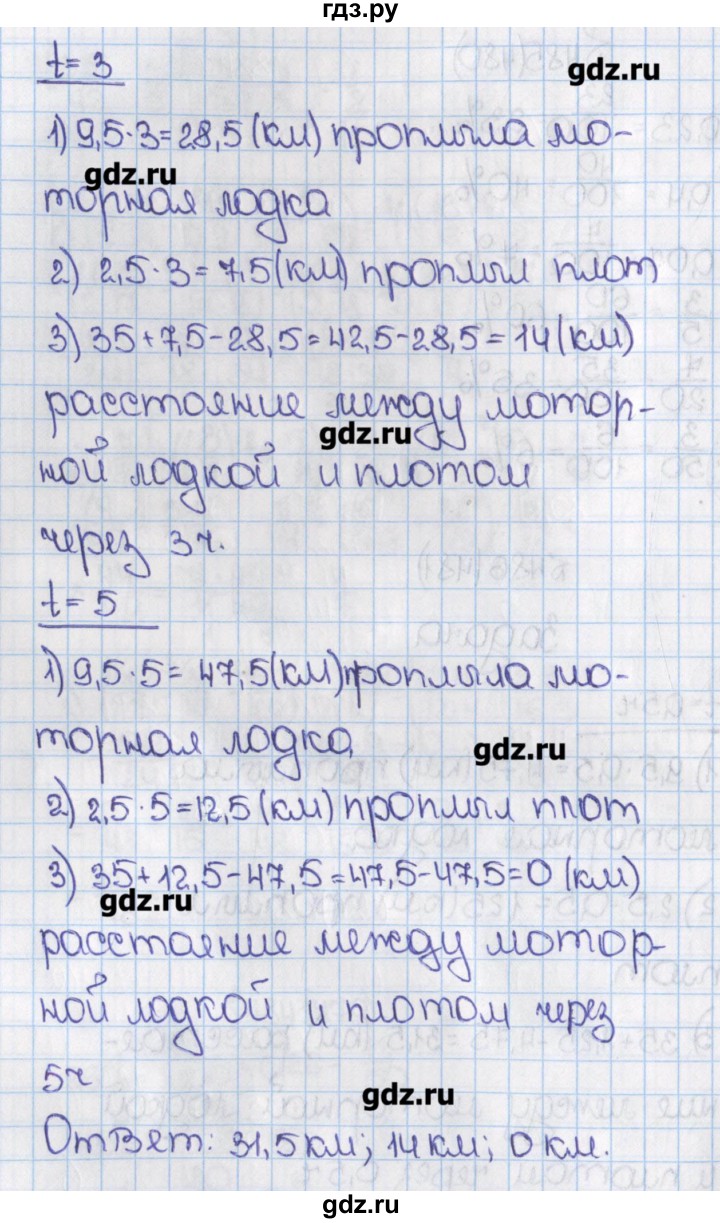 гдз.ру
t = 3
gdz.ru
1) 9,5·3=28,5 (км) проплыла мо-
gdz.ru
торная лодка
2) 2,5·3=7,5(км) проплыл плот
3) 35+7,5-28,5=42,5-28,5=14(км)
расстояние между мотор-
gdz.ru
ной лодкой и плотом
через 3ч.
t = 5
1) 9,5·5= 47,5(км) проплыла мо-
торная лодка
gdz.ru
2) 2,5·5=12,5(км) проплыл плот
3) 35+12,5-47,5=47,5-47,5=0 (км)
gdz.ru
расстояние между мотор-
ной лодкой и плотом через
5ч
gdz.ru
Ответ: 31,5км; 14км; 0км.
gdz.ru